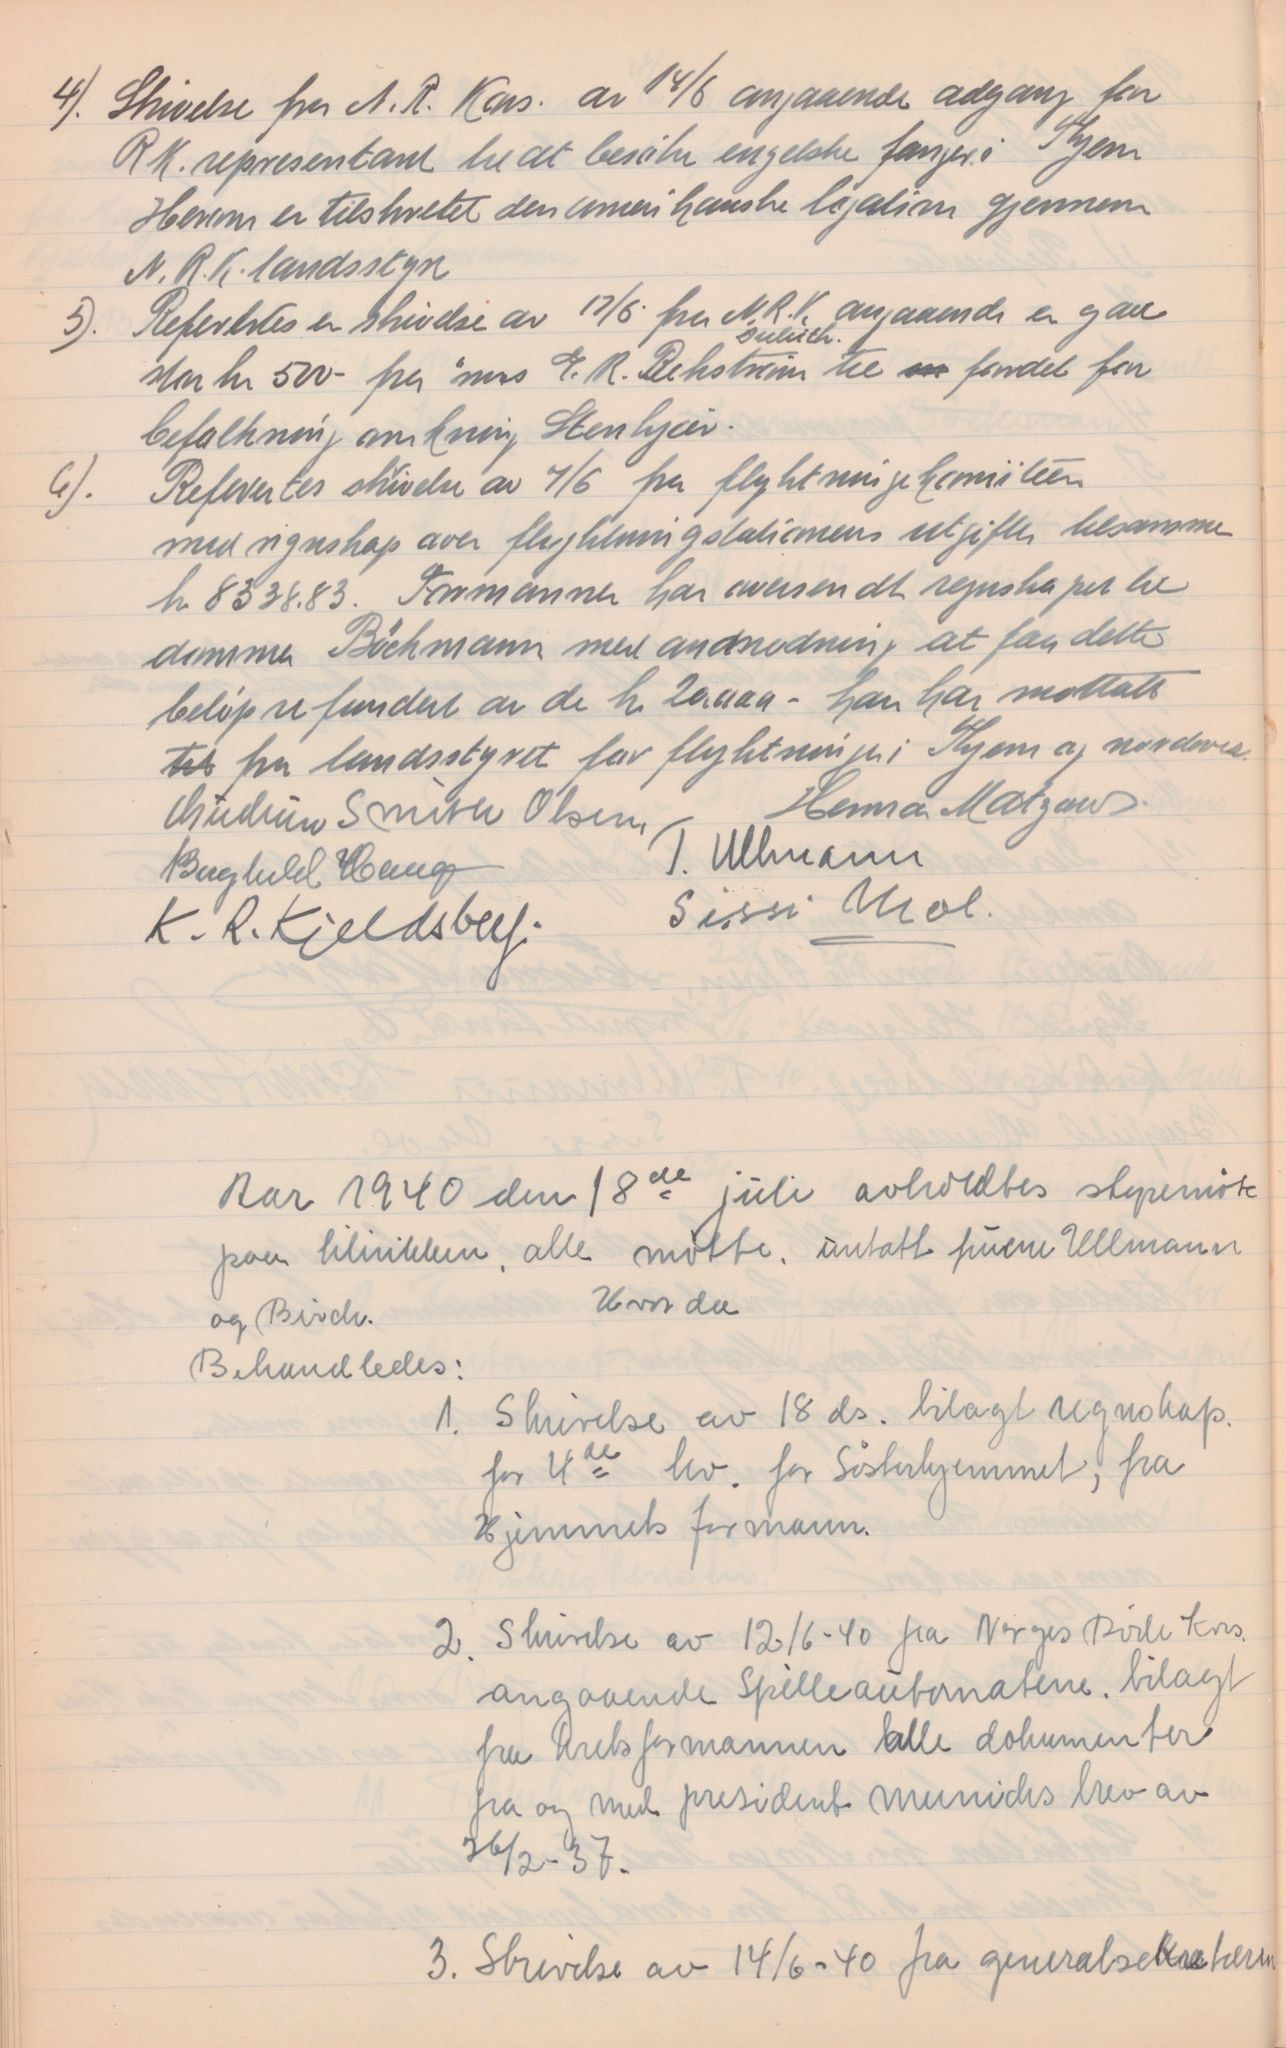 4). Skrivelse fra N. R. Kors. av 14/6 angaaende adgang for
R K. representant til at besöke engelske fanger i Stjern
Herom er tilskrevet den amerikanske legation gjennem
N. R. K. landsstyre
5). Refertes en skrivelse av 17/6 fra N. R. K. angaaende en gave
stor kr 500- fra mrs E. R. til fondet for
befolkning omkring Stenkjær.
6). Refertes skrivelse av 7/6 fra flyktningekomiteen
med regnskap over flyktningstationens utgifter tilsammen
kr 8338.83. Formannen har oversendt regnskapet til
dommer Böckmann med anmodning at faa dette
belöp refundert av de kr 20000- han har mottatt
til fra landsstyret for flyktninger i Stjern og nordover.
Smith Olsen, Henna
Borghild Haug T. Ullmann
K. R. Kjeldsberg. Sissi
Aar 1940 den 18de juli avholdtes styremöte
paa klinikken, alle mötte. untatt fruene Ullmann
og Birch. Hvor da
Behandledes:
1. Skrivelse av 18 ds. bilagt regnskap.
for 4de kv. for Sösterhjemmet, fra
Hjemmets formann.
2. Skrivelse av 12/6-40 fra Norges Röde Kors.
angaaende Spilleautomatene. bilagt
fra kretsformannen alle dokumenter
fra og med president Meinichs brev av
26/2-37.
3. Skrivelse av 14/6-40 fra generalsekretæren